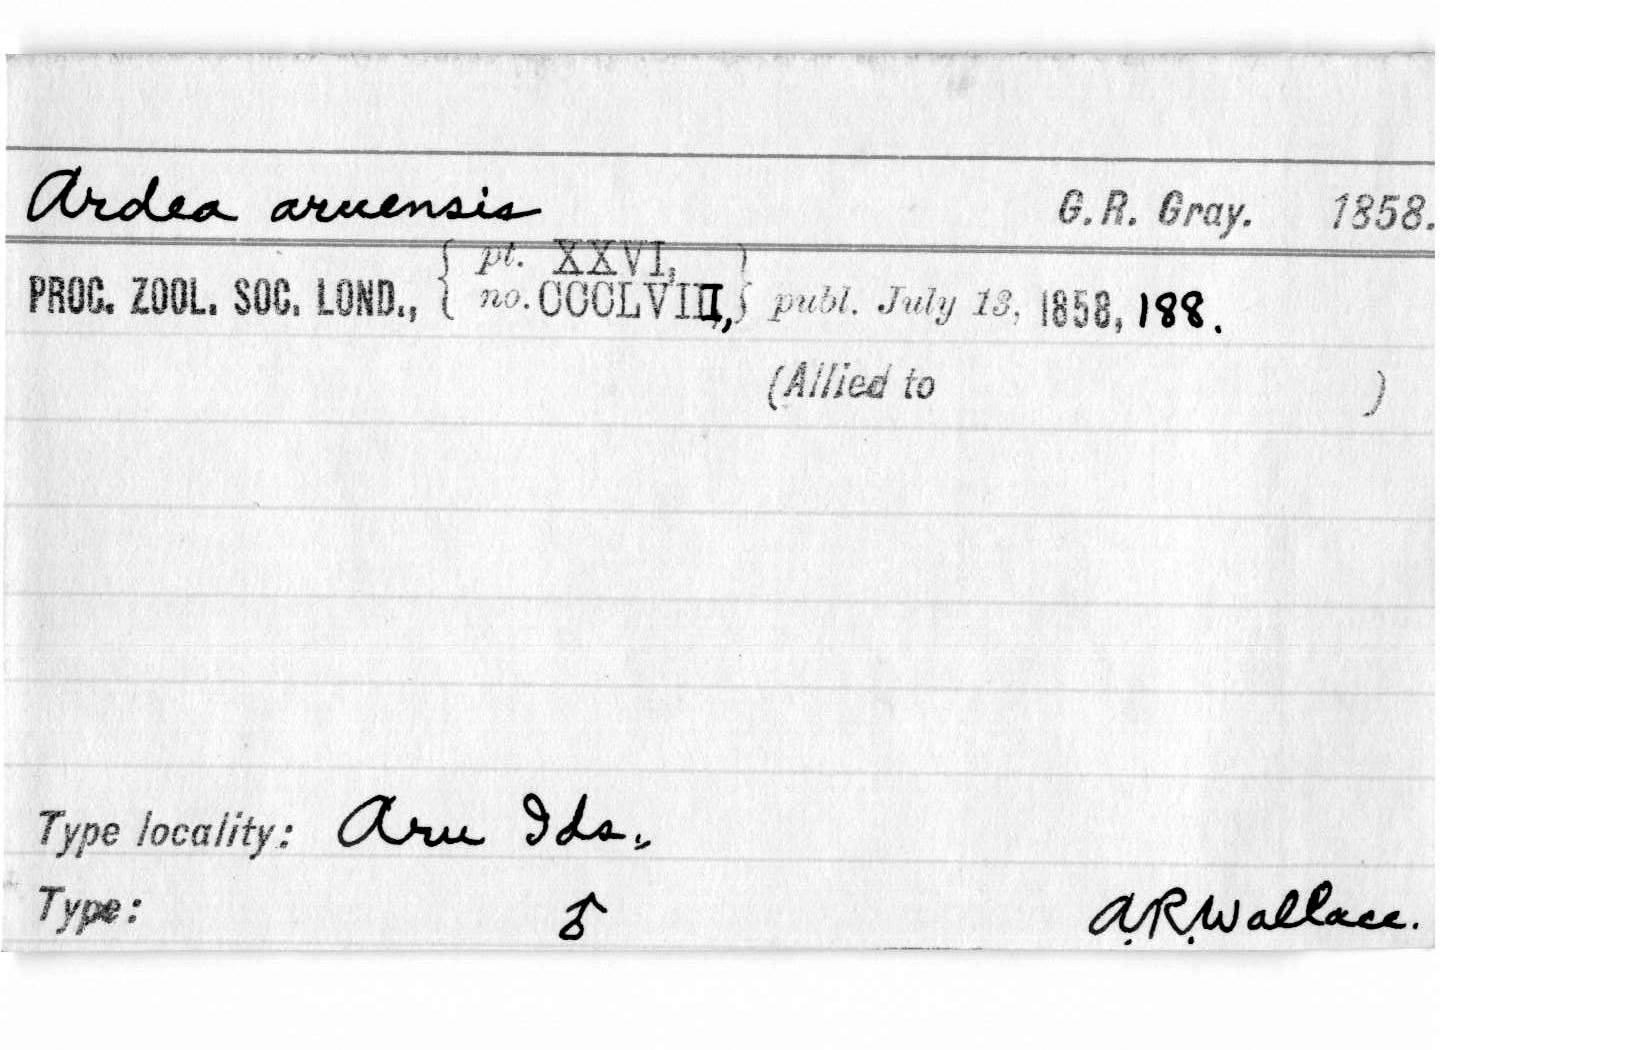 Ardea aruensis G.R. Gray. 1858.
PROC. ZOOL. SOC. LOND., { pt. XXVI, no. CCCLVIII, } publ. July 13, 1858, 188.
(Allied to )
Type locality: Aru Ids.,
Type: ♂ A.R. Wallace.